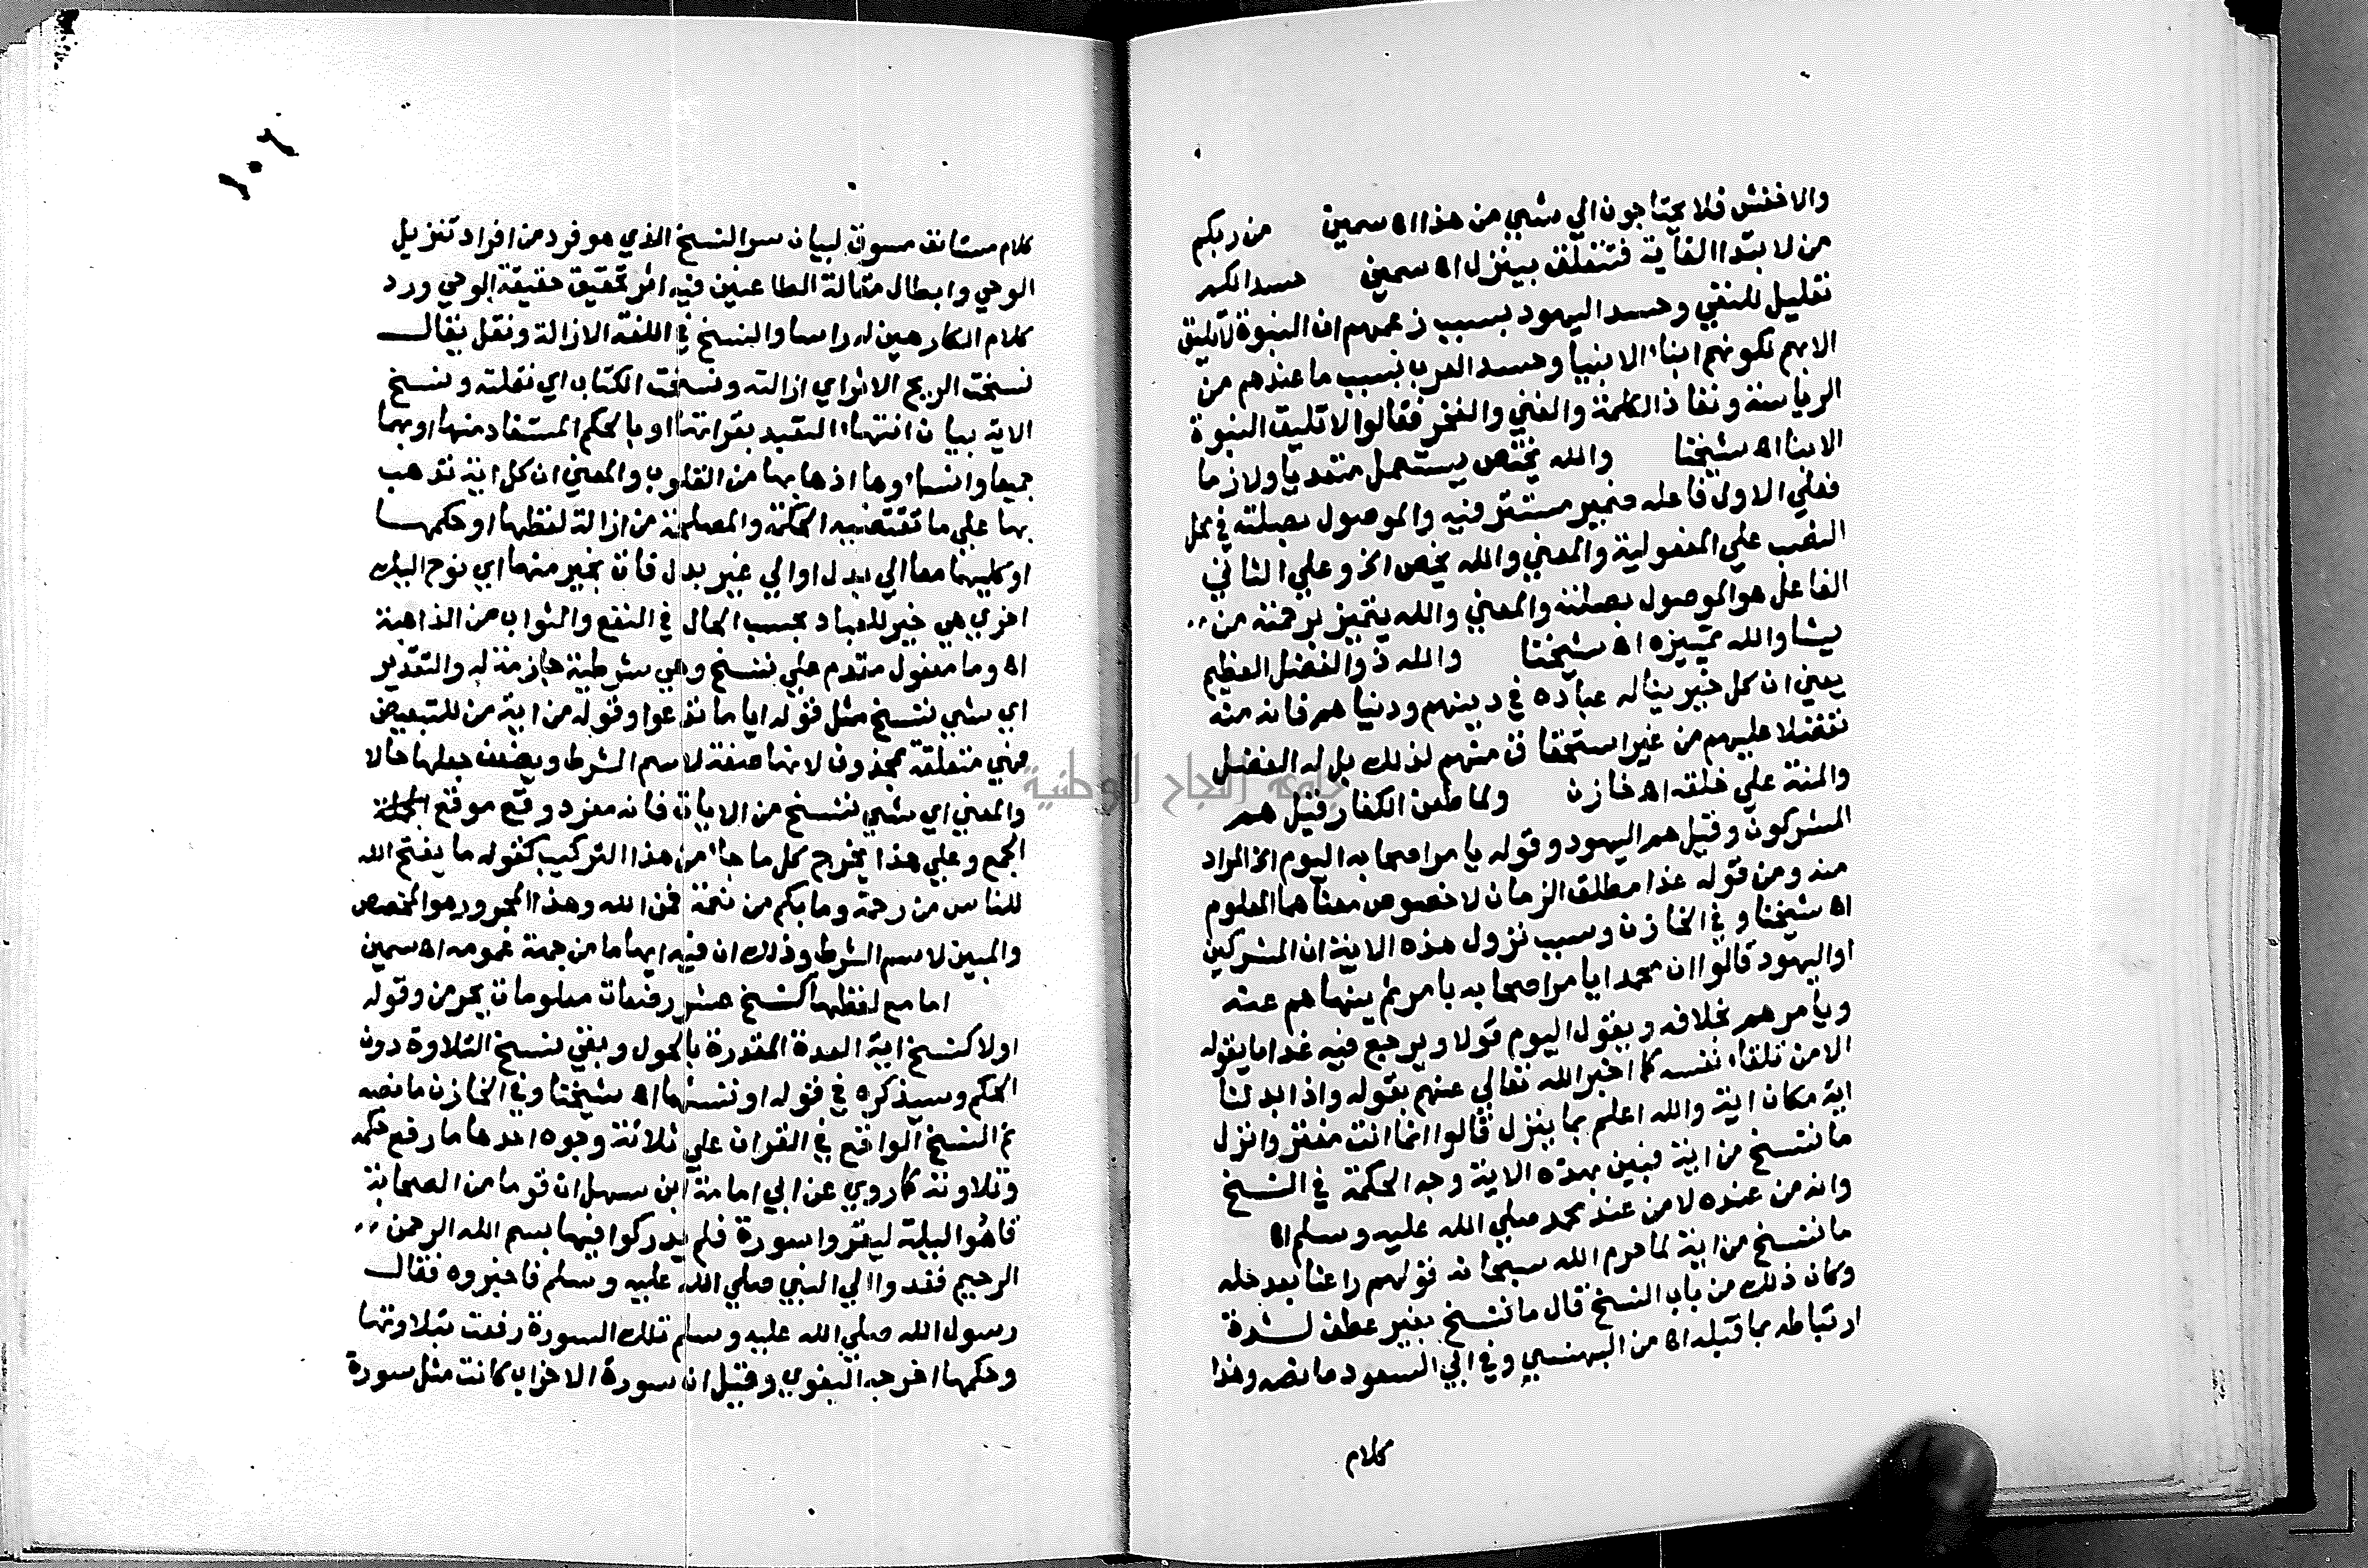 والاخفش فلا يحتاجون الي شيي من هذا اه سمين من ربكم
من لابتدا الغاية فتتعلق بينزل اه سمين حسدا لكم
تعليل للنفي وحسد اليهود بسبب زعمهم ان النبوة لا تليق
الا بهم لكونهم ابناء الانبيا وحسد العرب بسبب ما عندهم من
الرياسة ونفاذ الكلمة والغني والفخر فقالوا لا تليق النبوة
الا بنا اه شيخنا والله يختص يستعمل متعديا ولازما
فعلي الاول فاعله ضمير مستتر فيه والموصول بصلته في محل
النصب علي المفعولية والمعني والله يخص الخ وعلي الثاني
الفاعل هو الموصول بصلته والمعني والله يتميز برحمته من
يشا والله تمييزه اه شيخنا والله ذو الفضل العظيم
يعني ان كل خير يناله عباده في دينهم ودنياهم فانه منه
تفضلا عليهم من غير استحقاق منهم لذلك بل له الفضل
والمنة علي خلقه اه خازن ولما طعن الكفار قيل هم
المشركون وقيل هم اليهود وقوله يامر اصحابه اليوم الخ المراد
منه ومن قوله غدا مطلق الزمان لا خصوص معناهما المعلوم
اه شيخنا وفي الخازن وسبب نزول هذه الاية ان المشركين
او اليهود قالوا ان محمدا يامر اصحابه بامر ثم ينهاهم عنه
ويامرهم بخلافه ويقول اليوم قولا ويرجع فيه غدا ما يقوله
الا من تلقاء نفسه كما اخبر الله تعالي عنهم بقوله واذا بدلنا
اية مكان اية والله اعلم بما ينزل قالوا انما انت مفتر وانزل
ما ننسخ من اية فبين بهذه الاية وجه الحكمة في النسخ
وانه من عنده لا من عند محمد صلي الله عليه وسلم اه
ما ننسخ من اية لما حرم الله سبحانه قولهم راعنا بعد حله
وكان ذلك من باب النسخ قال ما ننسخ بغير عطف لشدة
ارتباطه بما قبله اه من السهنسي وفي ابي السعود ما نصه وهذا
كلام
١٠٢
كلام مستانف مسوق لبيان سر النسخ الذي هو فرد من افراد تنزيل
الوحي وابطال مقالة الطاعنين فيه اثر تحقيق حقيقة الوحي ورد
كلام الكارهين له راسا والنسخ في اللغة الازالة ونقل يقال
نسخت الريح الاثر اي ازالته ونسخت الكتاب اي نقلته ونسخ
الاية بيان انتهاء التقيد بقراتها او بالحكم المستفاد منها او بهما
جميعا وانساءوها اذهابها من القلوب والمعني ان كل اية نذهب
بها علي ما تقتضيه الحكمة والمصلحة من ازالة لفظها او حكمها
او كليهما معا الي بدل او الي غير بدل فات بخير منها اي نوح اليك
اخري هي خير للعباد بحسب الحال في النفع والثواب من الذاهبة
اه وما مفعول مقدم علي ننسخ وهي شرطية جازمة له والتقدير
اي شيي ننسخ مثل قوله ايا ما تدعوا وقوله من اية من للتبعيض
فهي متعلقة بمحذوف لانها صفة لاسم الشرط ويضعف جعلها حالا
والمعني اي شيي ننسخ من الايات فاية مفرد وقع موقع الجملة
الجمع وعلي هذا يخرج كل ما جاء من هذا التركيب كقوله ما يفتح الله
للناس من رحمة وما بكم من نعمة فمن الله وهذا المجرور هو المخصص
والمبين لاسم الشرط وذلك ان فيه ابهاما من جهة عمومه اه سمين
اما مع لفظها كنسخ عشر رضعات معلومات يحرمن وقوله
اولا كنسخ اية العدة المقدرة بالحول وبقي نسخ التلاوة دون
الحكم وسيذكره في قوله او ننسها اه شيخنا وفي الخازن ما نصه
ثم النسخ الواقع في القران علي ثلاثة وجوه احدها ما رفع حكمه
وتلاوته كما روي عن ابي امامة ابن سهل ان قوما من الصحابة
قاموا ليلة ليقروا سورة فلم يدركوا فيها بسم الله الرحمن
الرحيم فغدوا الي النبي صلي الله عليه وسلم فاخبروه فقال
رسول الله صلي الله عليه وسلم تلك السورة رفعت بتلاوتها
وحكمها اخرجه البغوي وقيل ان سورة الاحزاب كانت مثل سورة
جامعة النجاح الوطنية